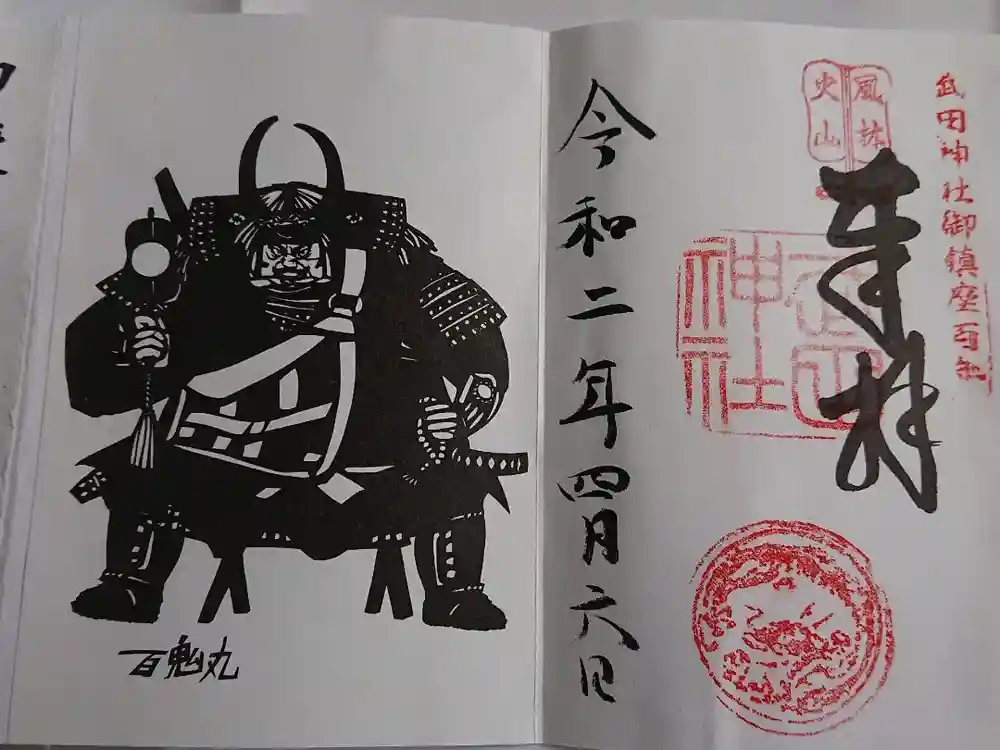 武田神社御鎮座百
風林
火山
奉拝
武田
神社
令和二年四月六日
百鬼丸